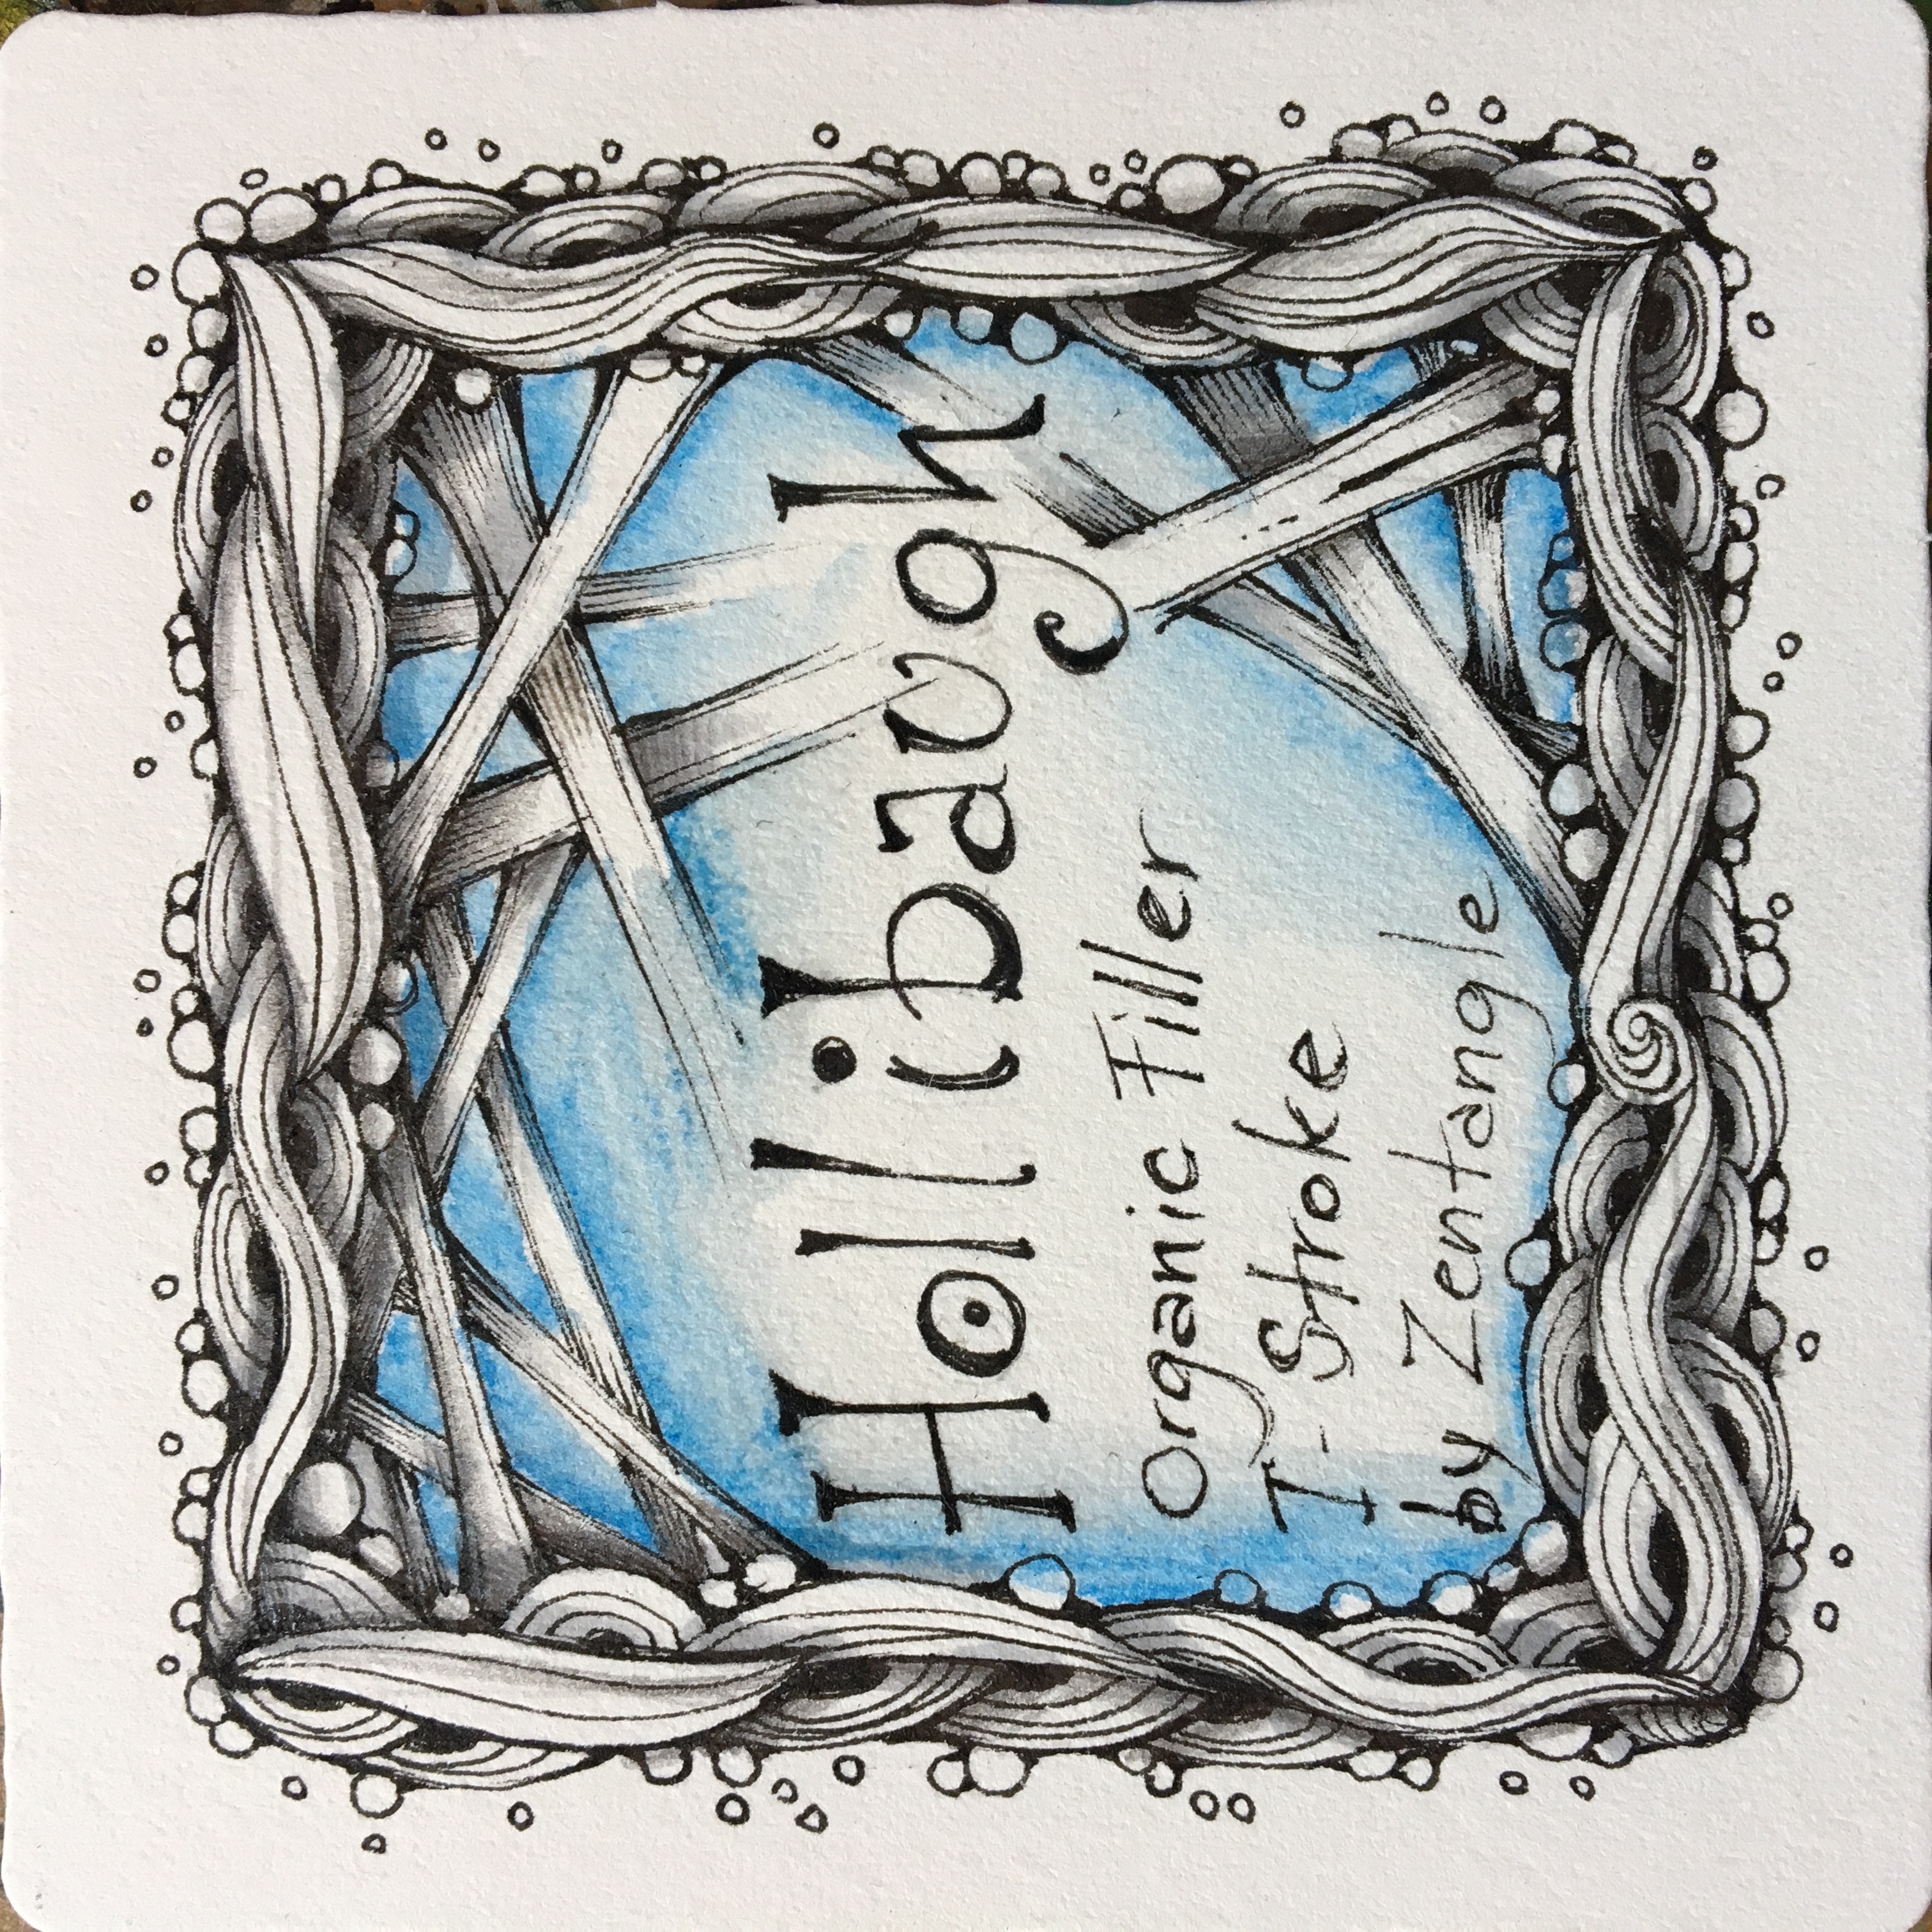 Hollibaugh
Organic Filler
I - Stroke
by Zentangle